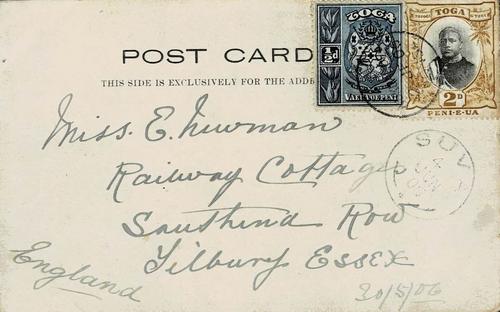 POST CARD
THIS SIDE IS EXCLUSIVELY FOR THE ADD
½d
TOGA
VAEUA OE PENI
TOGA
2D
PENI-E-UA
SUV
Miss. E. Newman
Railway Cottages
Southend Row
Tilbury ESSEX
England
30/5/06